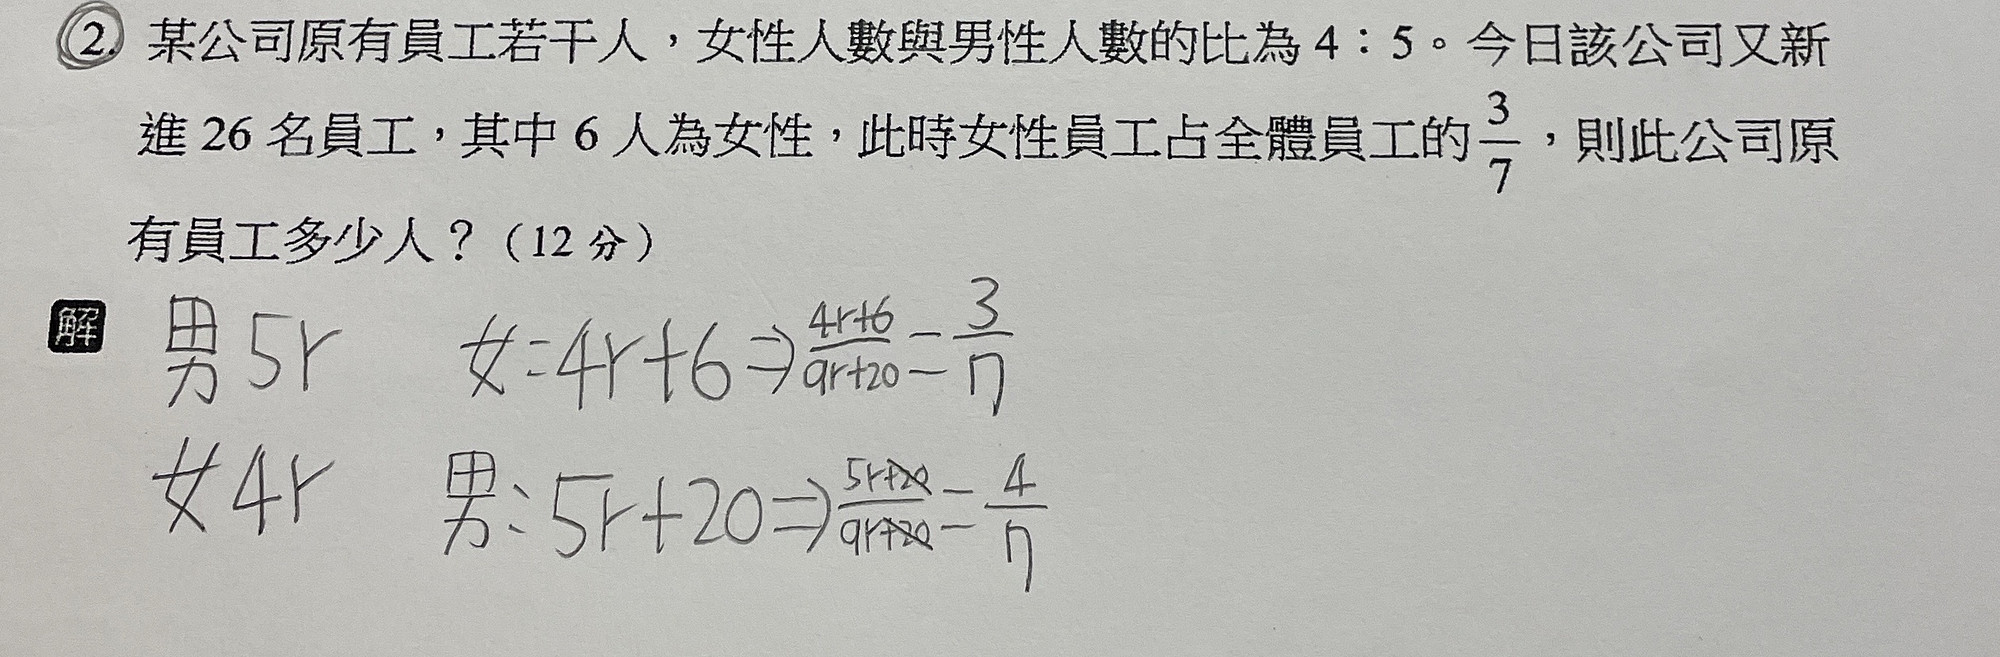 2. 某公司原有員工若干人，女性人數與男性人數的比為 4：5。今日該公司又新
進 26 名員工，其中 6 人為女性，此時女性員工占全體員工的 3/7，則此公司原
有員工多少人？（12 分）
解 男 5r 女:4r+6 ⇒ 4r+6/9r+20 = 3/7
女 4r 男:5r+20 ⇒ 5r+20/9r+20 = 4/7